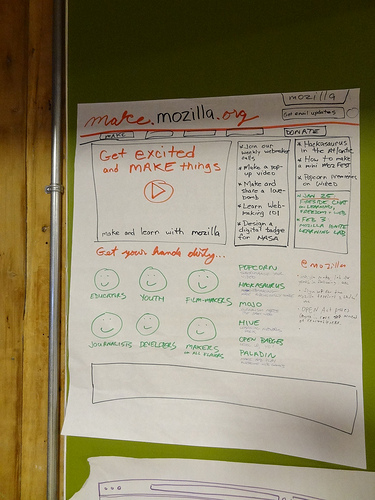 mozilla
make.mozilla.org
Get email updates
MAKE
DONATE
Get excited
and MAKE things
make and learn with mozilla
* Join our
weekly webmaker
calls
* Make a pop-
up video
* Make and
share a love-
bomb
* Learn Web-
making 101
* Design a
digital badge
for NASA
* Hackasaurus
in the Atlantic
* How to make
a mini MozFest
* Popcorn
on Wired
* JAN 25
FIRESIDE CHAT
on LEARNING,
FREEDOM + WEB
* FEB 3
MOZILLA IGNITE
LEARNING LAB
Get your hands dirty...
EDUCATORS
YOUTH
FILM-MAKERS
JOURNALISTS
DEVELOPERS
MAKERS
OF ALL FLAVORS
POPCORN
HACKASAURUS
MOJO
HIVE
OPEN BADGES
PALADIN
@mozilla